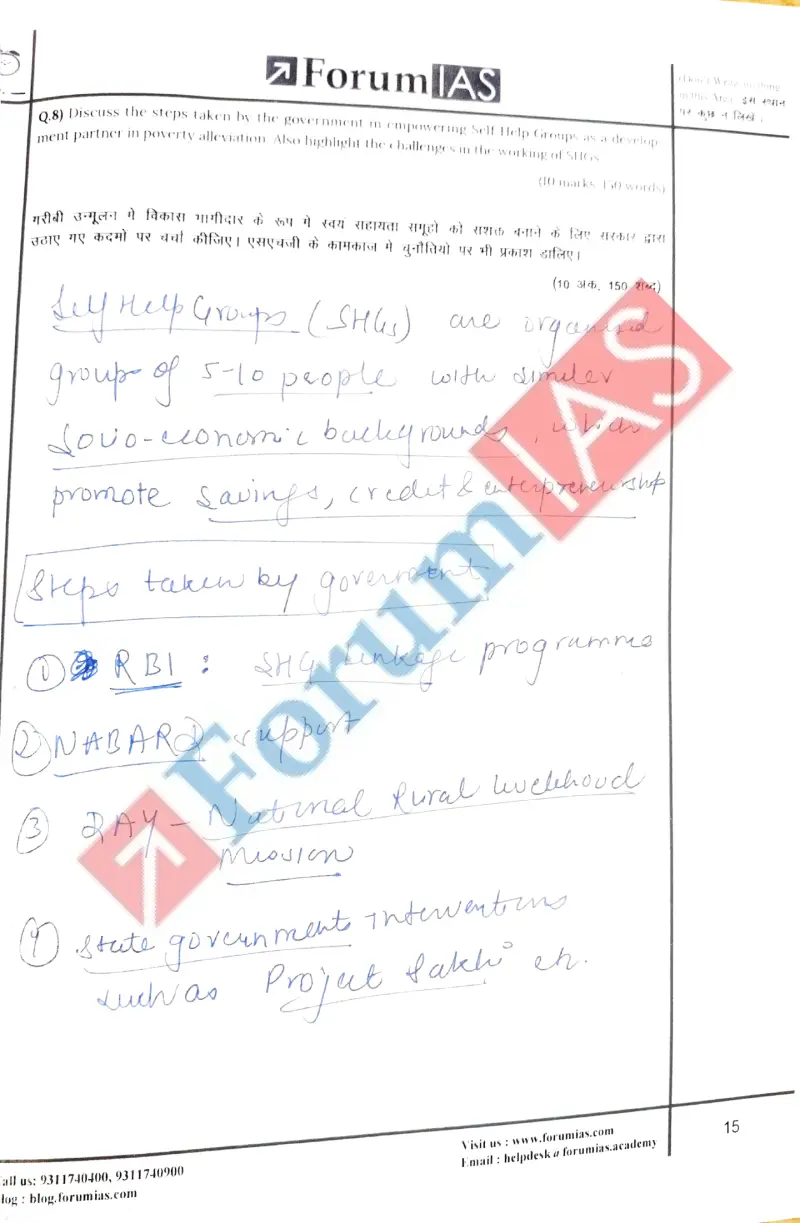 ForumIAS
(Don't Write anything
in this Area इस स्थान
पर कुछ न लिखें ।
Q.8) Discuss the steps taken by the government in empowering Self Help Groups as a develop-
ment partner in poverty alleviation. Also highlight the challenges in the working of SHGs
(10 marks, 150 words)
गरीबी उन्मूलन में विकास भागीदार के रूप में स्वयं सहायता समूहों को सशक्त बनाने के लिए सरकार द्वारा
उठाए गए कदमों पर चर्चा कीजिए। एसएचजी के कामकाज में चुनौतियों पर भी प्रकाश डालिए।
(10 अंक, 150 शब्द)
Self Help Groups (SHGs) are organised
group of 5-10 people with similar
Socio-economic backgrounds, which
promote savings, credit & enterpreneurship
Steps taken by government
① RBI : SHG Linkage programme
② NABARD support
③ DAY - National Rural livelihood
Mission
④ State governments interventions
such as Project Sakhi etc.
ForumIAS
15
Visit us : www.forumias.com
Email : helpdesk@forumias.academy
all us: 9311740400, 9311740900
log : blog.forumias.com